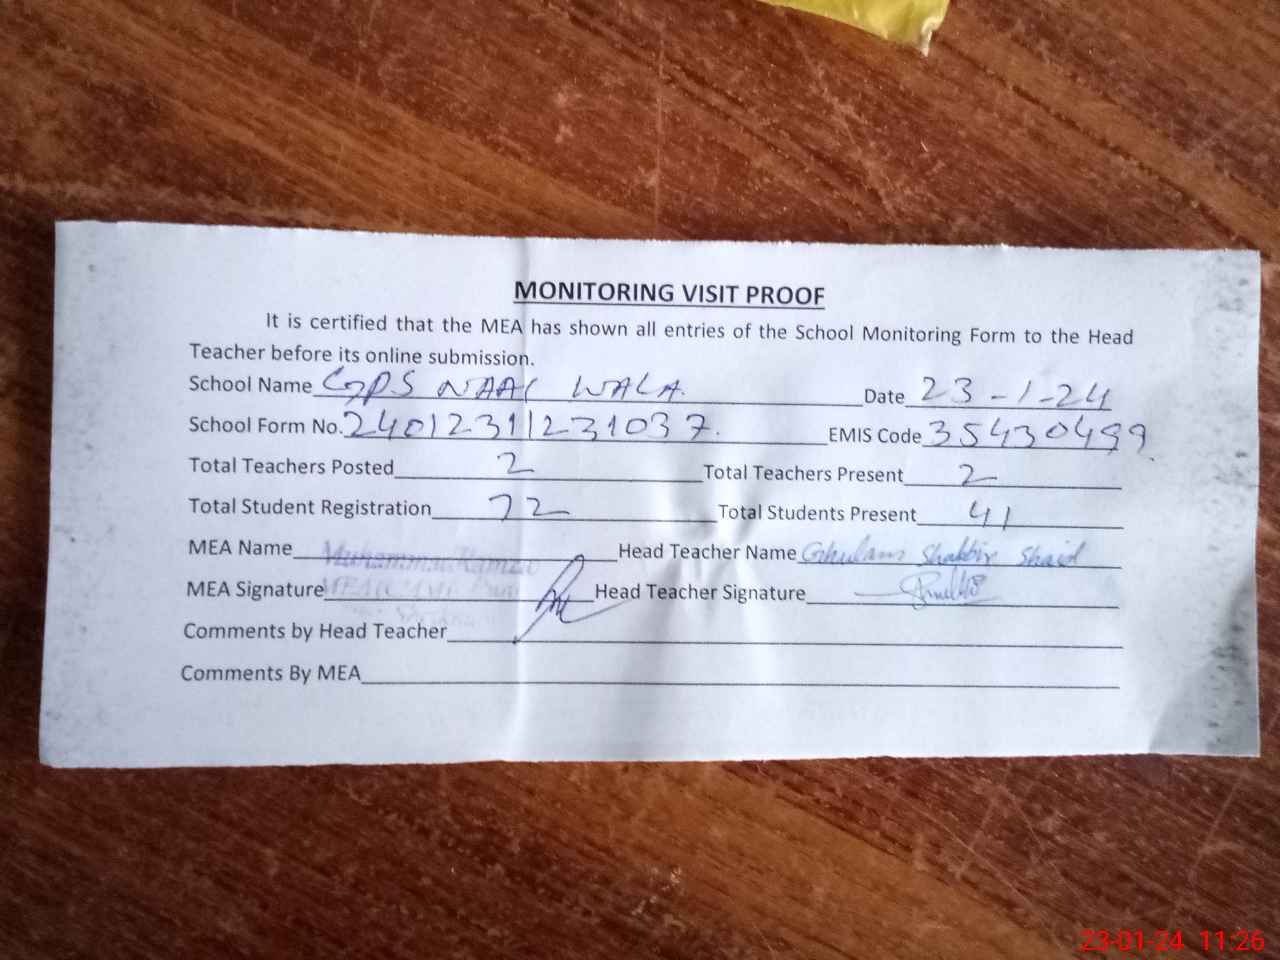 MONITORING VISIT PROOF
It is certified that the MEA has shown all entries of the School Monitoring Form to the Head
Teacher before its online submission.
School Name GPS NAAI WALA Date 23-1-24
School Form No. 24012311231037. EMIS Code 35430499
Total Teachers Posted 2 Total Teachers Present 2
Total Student Registration 72 Total Students Present 41
MEA Name Muhammad Ramzan Head Teacher Name Ghulam Shabbir Shaid
MEA Signature Head Teacher Signature
Comments by Head Teacher
Comments By MEA
23-01-24 11:26